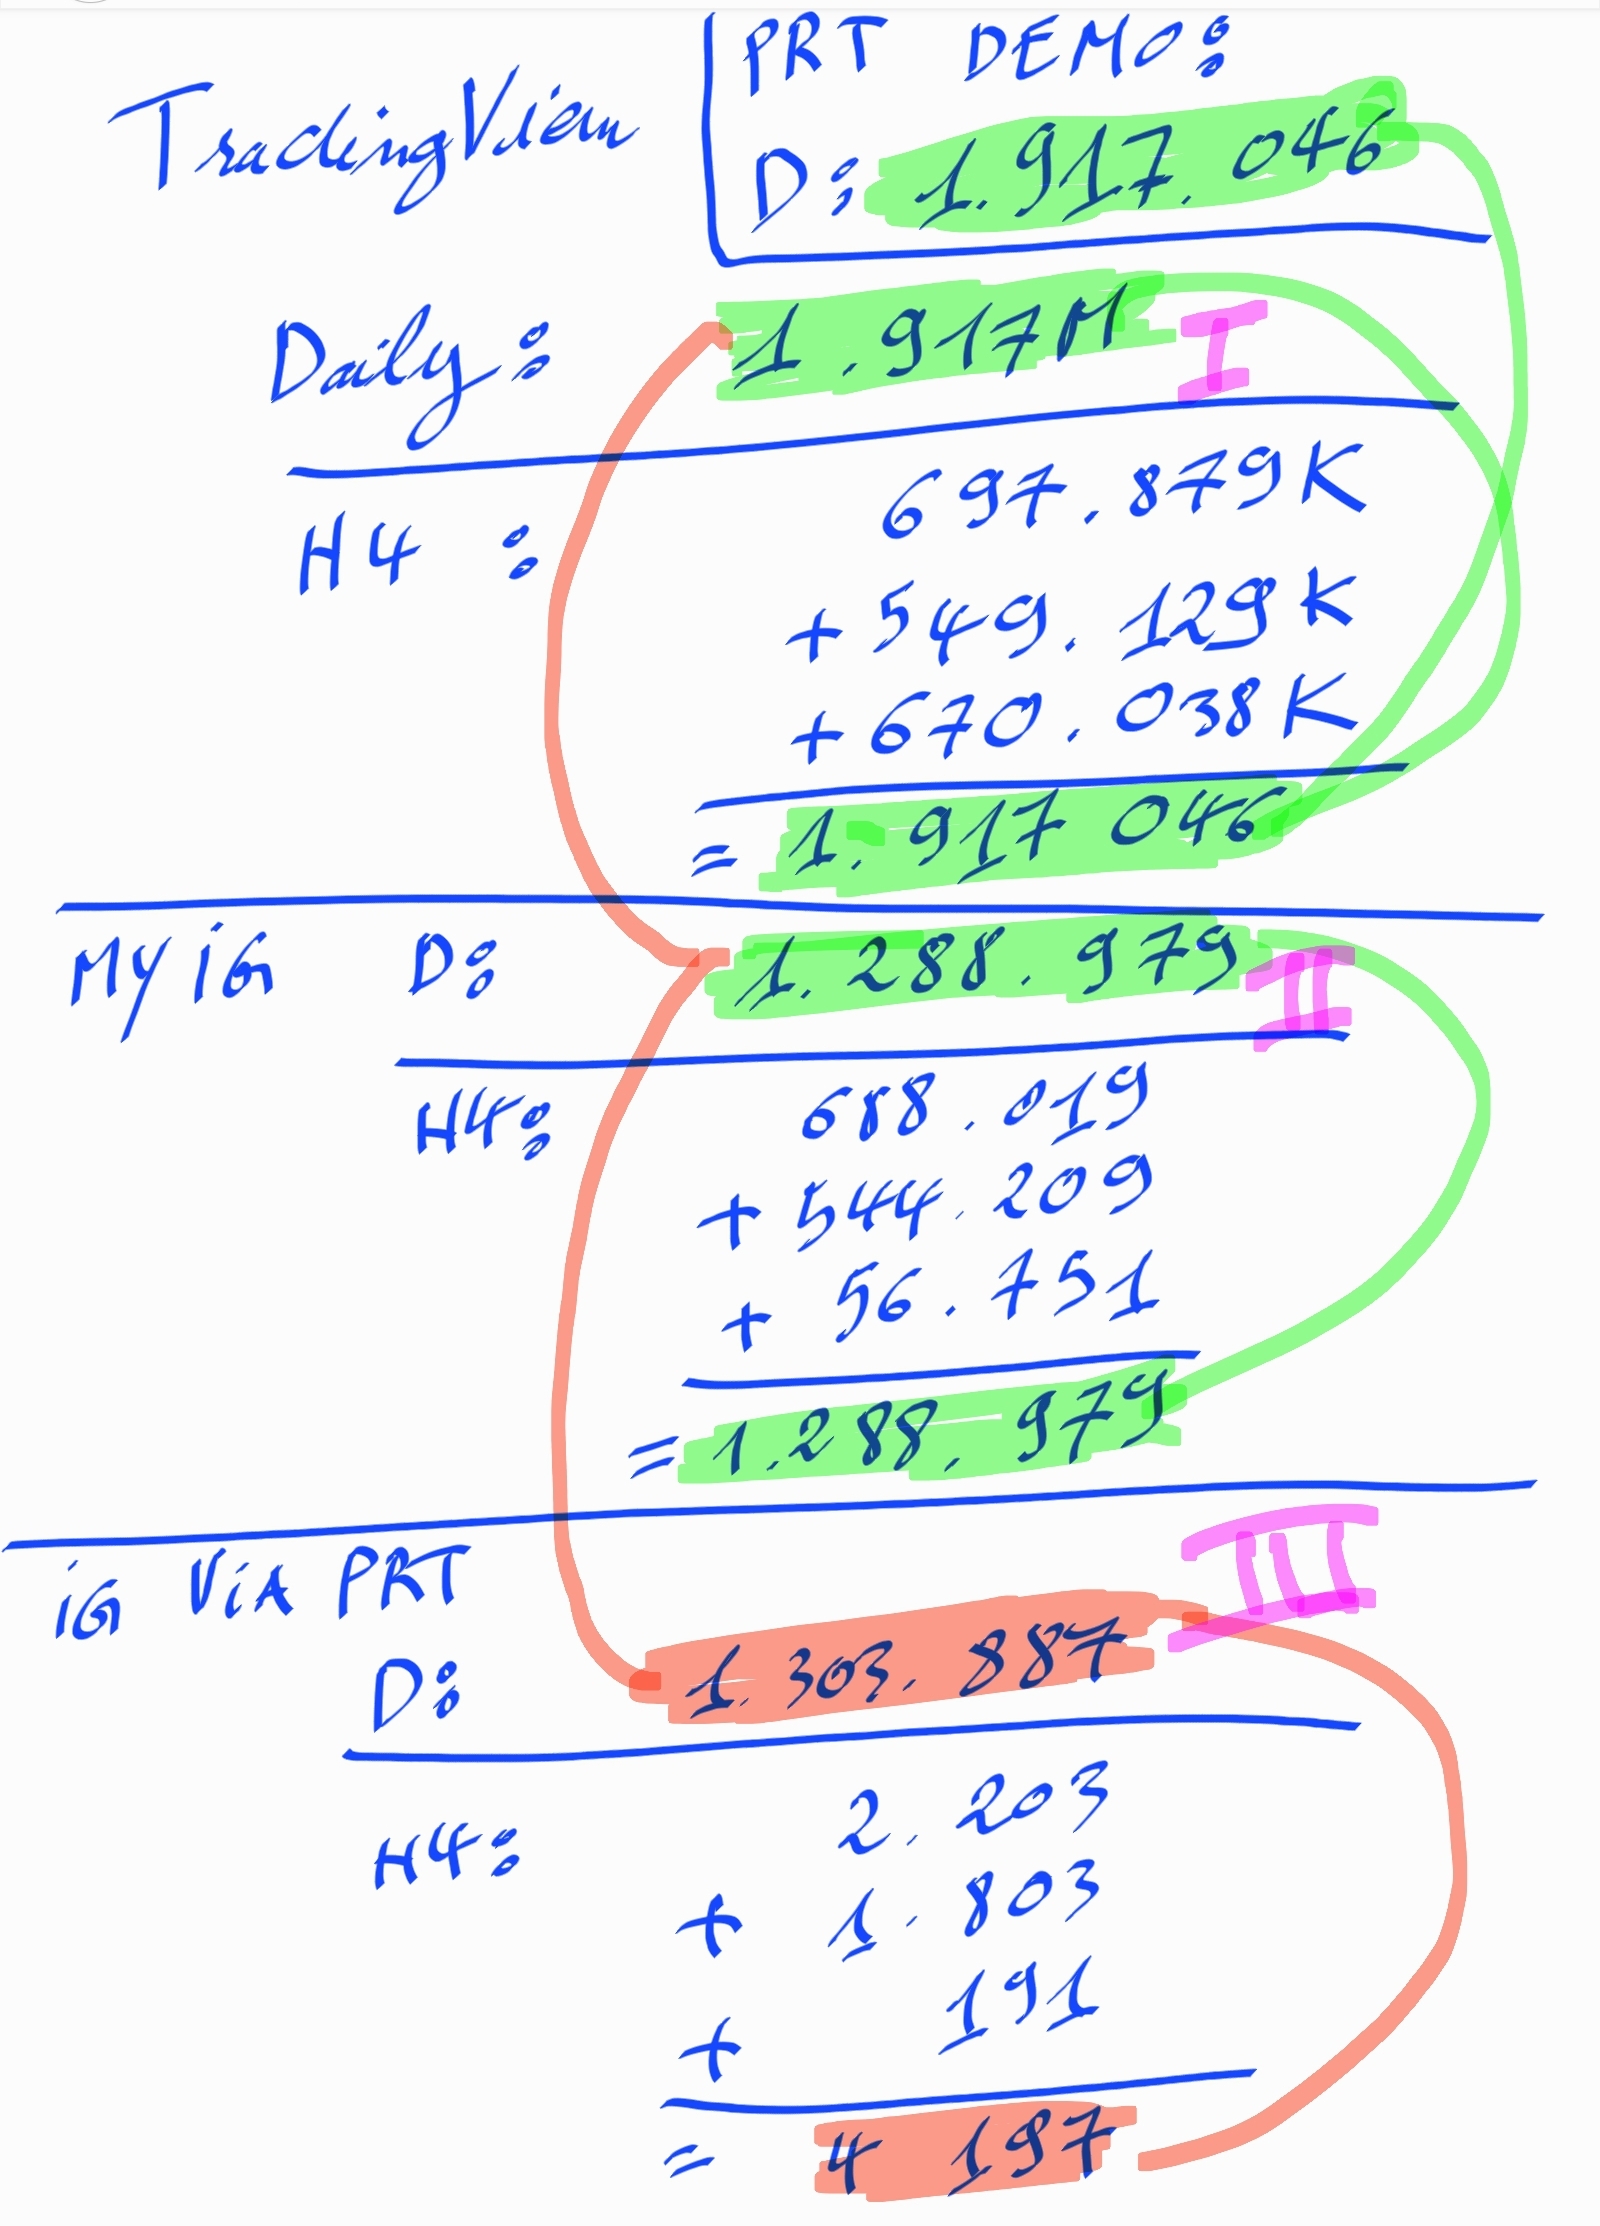 PRT DEMO:
TradingView
D: 1.917.046
Daily: 1.917M I
H4: 697.879K
+ 549.129K
+ 670.038K
= 1.917 046
MY iG D: 1.288.979 II
H4: 688.019
+ 544.209
+ 56.751
= 1.288.979
iG ViA PRT III
D: 1.303.887
H4: 2.203
+ 1.803
+ 191
= 4 197